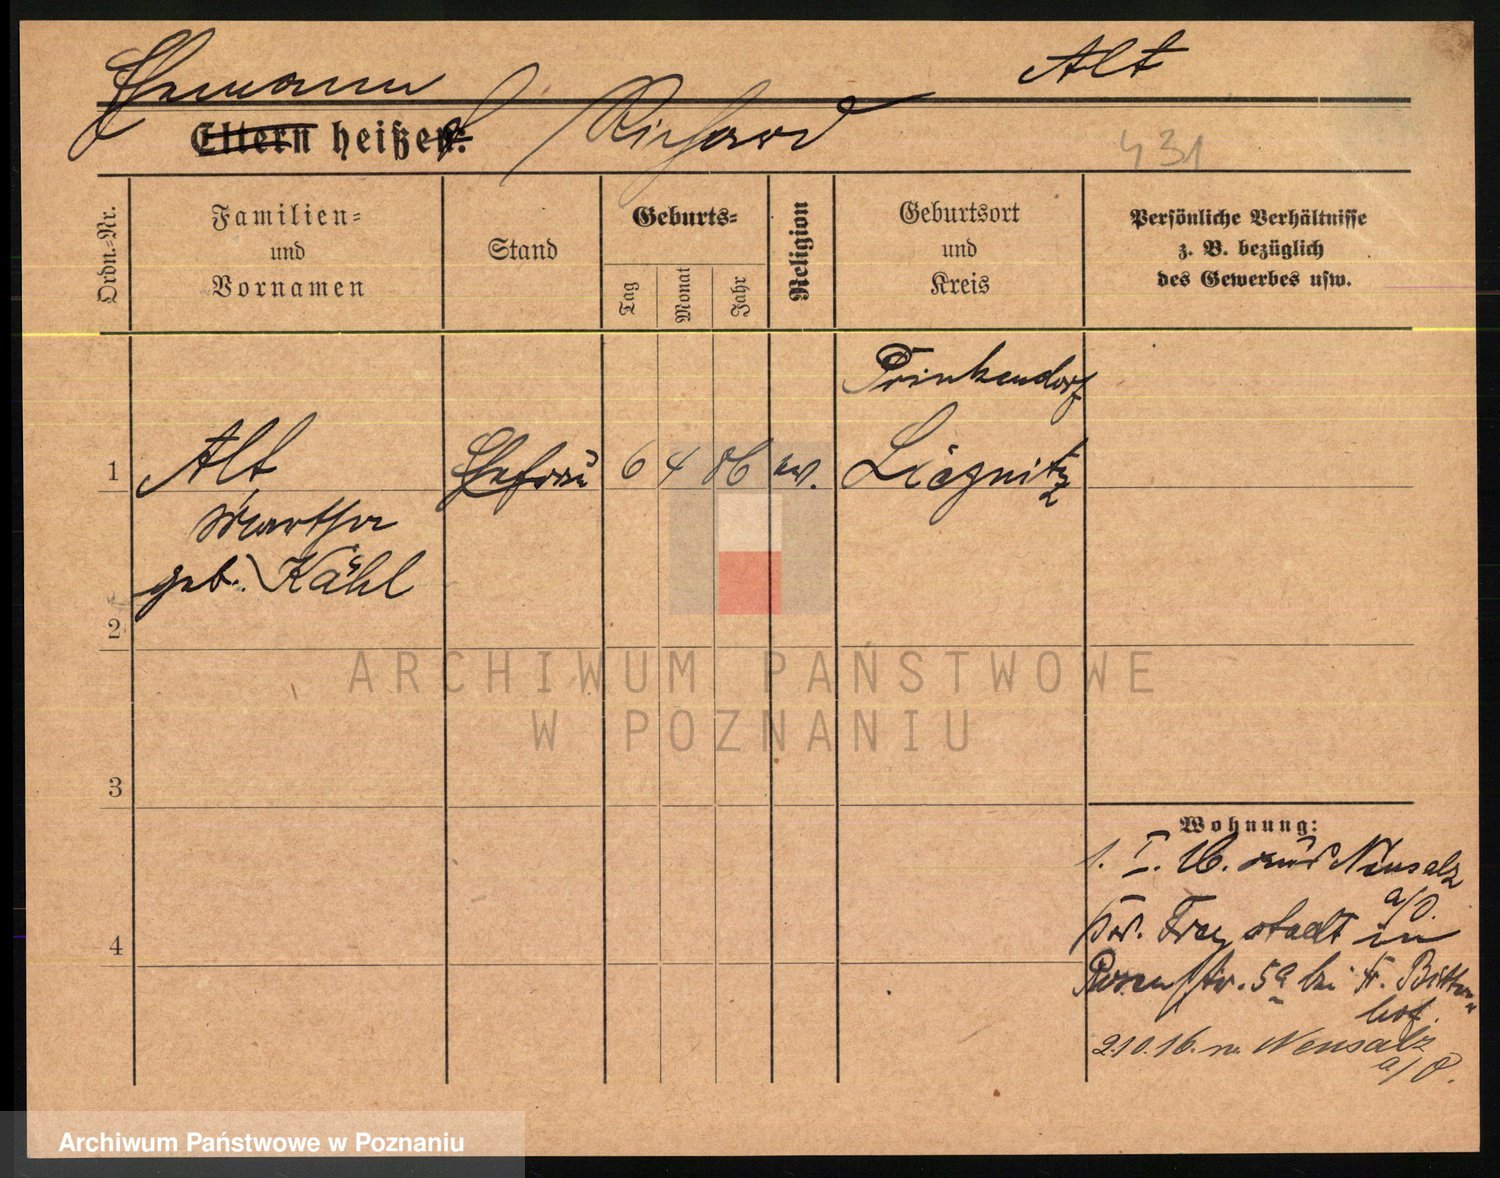 Ehemann Alt
Eltern heißen: Richard
431
Ordn.-Nr.
Familien-
und
Vornamen
Stand
Geburts-
Tag
Monat
Jahr
Religion
Geburtsort
und
Kreis
Persönliche Verhältnisse
z. B. bezüglich
des Gewerbes usw.
Prinkendorf
1 Alt Ehefrau 6 4 86 ev. Liegnitz
Martha
geb. Kähl
2
3
4
Wohnung:
1. I. 16. aus Neusalz
a/O.
Freystadt in
Rosenstr. 5a bei Fr. Bitten
hof.
2.10.16. n. Neusalz
a/O.
ARCHIWUM PAŃSTWOWE
W POZNANIU
Archiwum Państwowe w Poznaniu